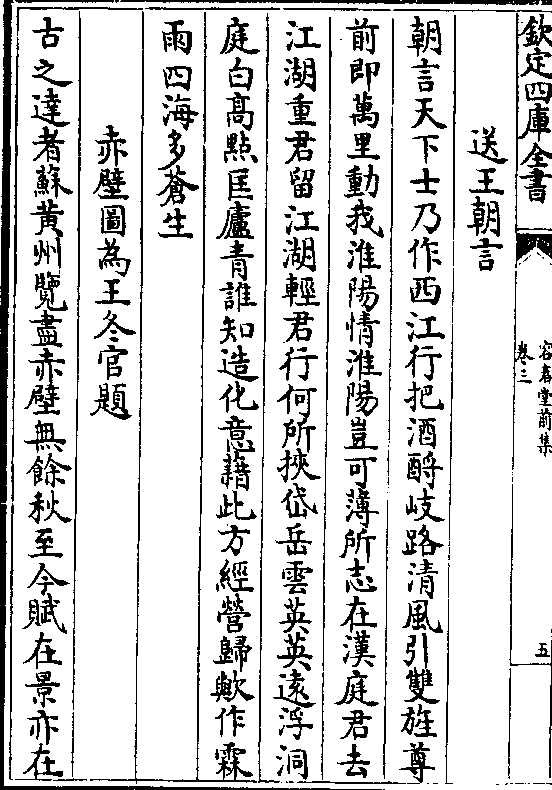 欽定四庫全書
容春堂前集
卷三
五
送王朝言
朝言天下士乃作西江行把酒酹岐路清風引雙旌尊
前即萬里動我淮陽情淮陽豈可薄所志在漢庭君去
江湖重君留江湖輕君行何所挾岱岳雲英英遠浮洞
庭白高點匡廬青誰知造化意藉此方經營歸歟作霖
雨四海多蒼生
赤壁圖為王冬官題
古之達者蘇黃州覽盡赤壁無餘秋至今賦在景亦在